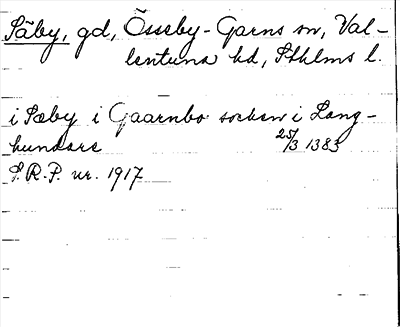 Säby, gd, Össeby-Garns sn, Val-
lentuna hd, Sthlms l.
i Sæby i Gaarnbo sochen i Lang-
hundare 25/3 1383
S.R.P. nr. 1917